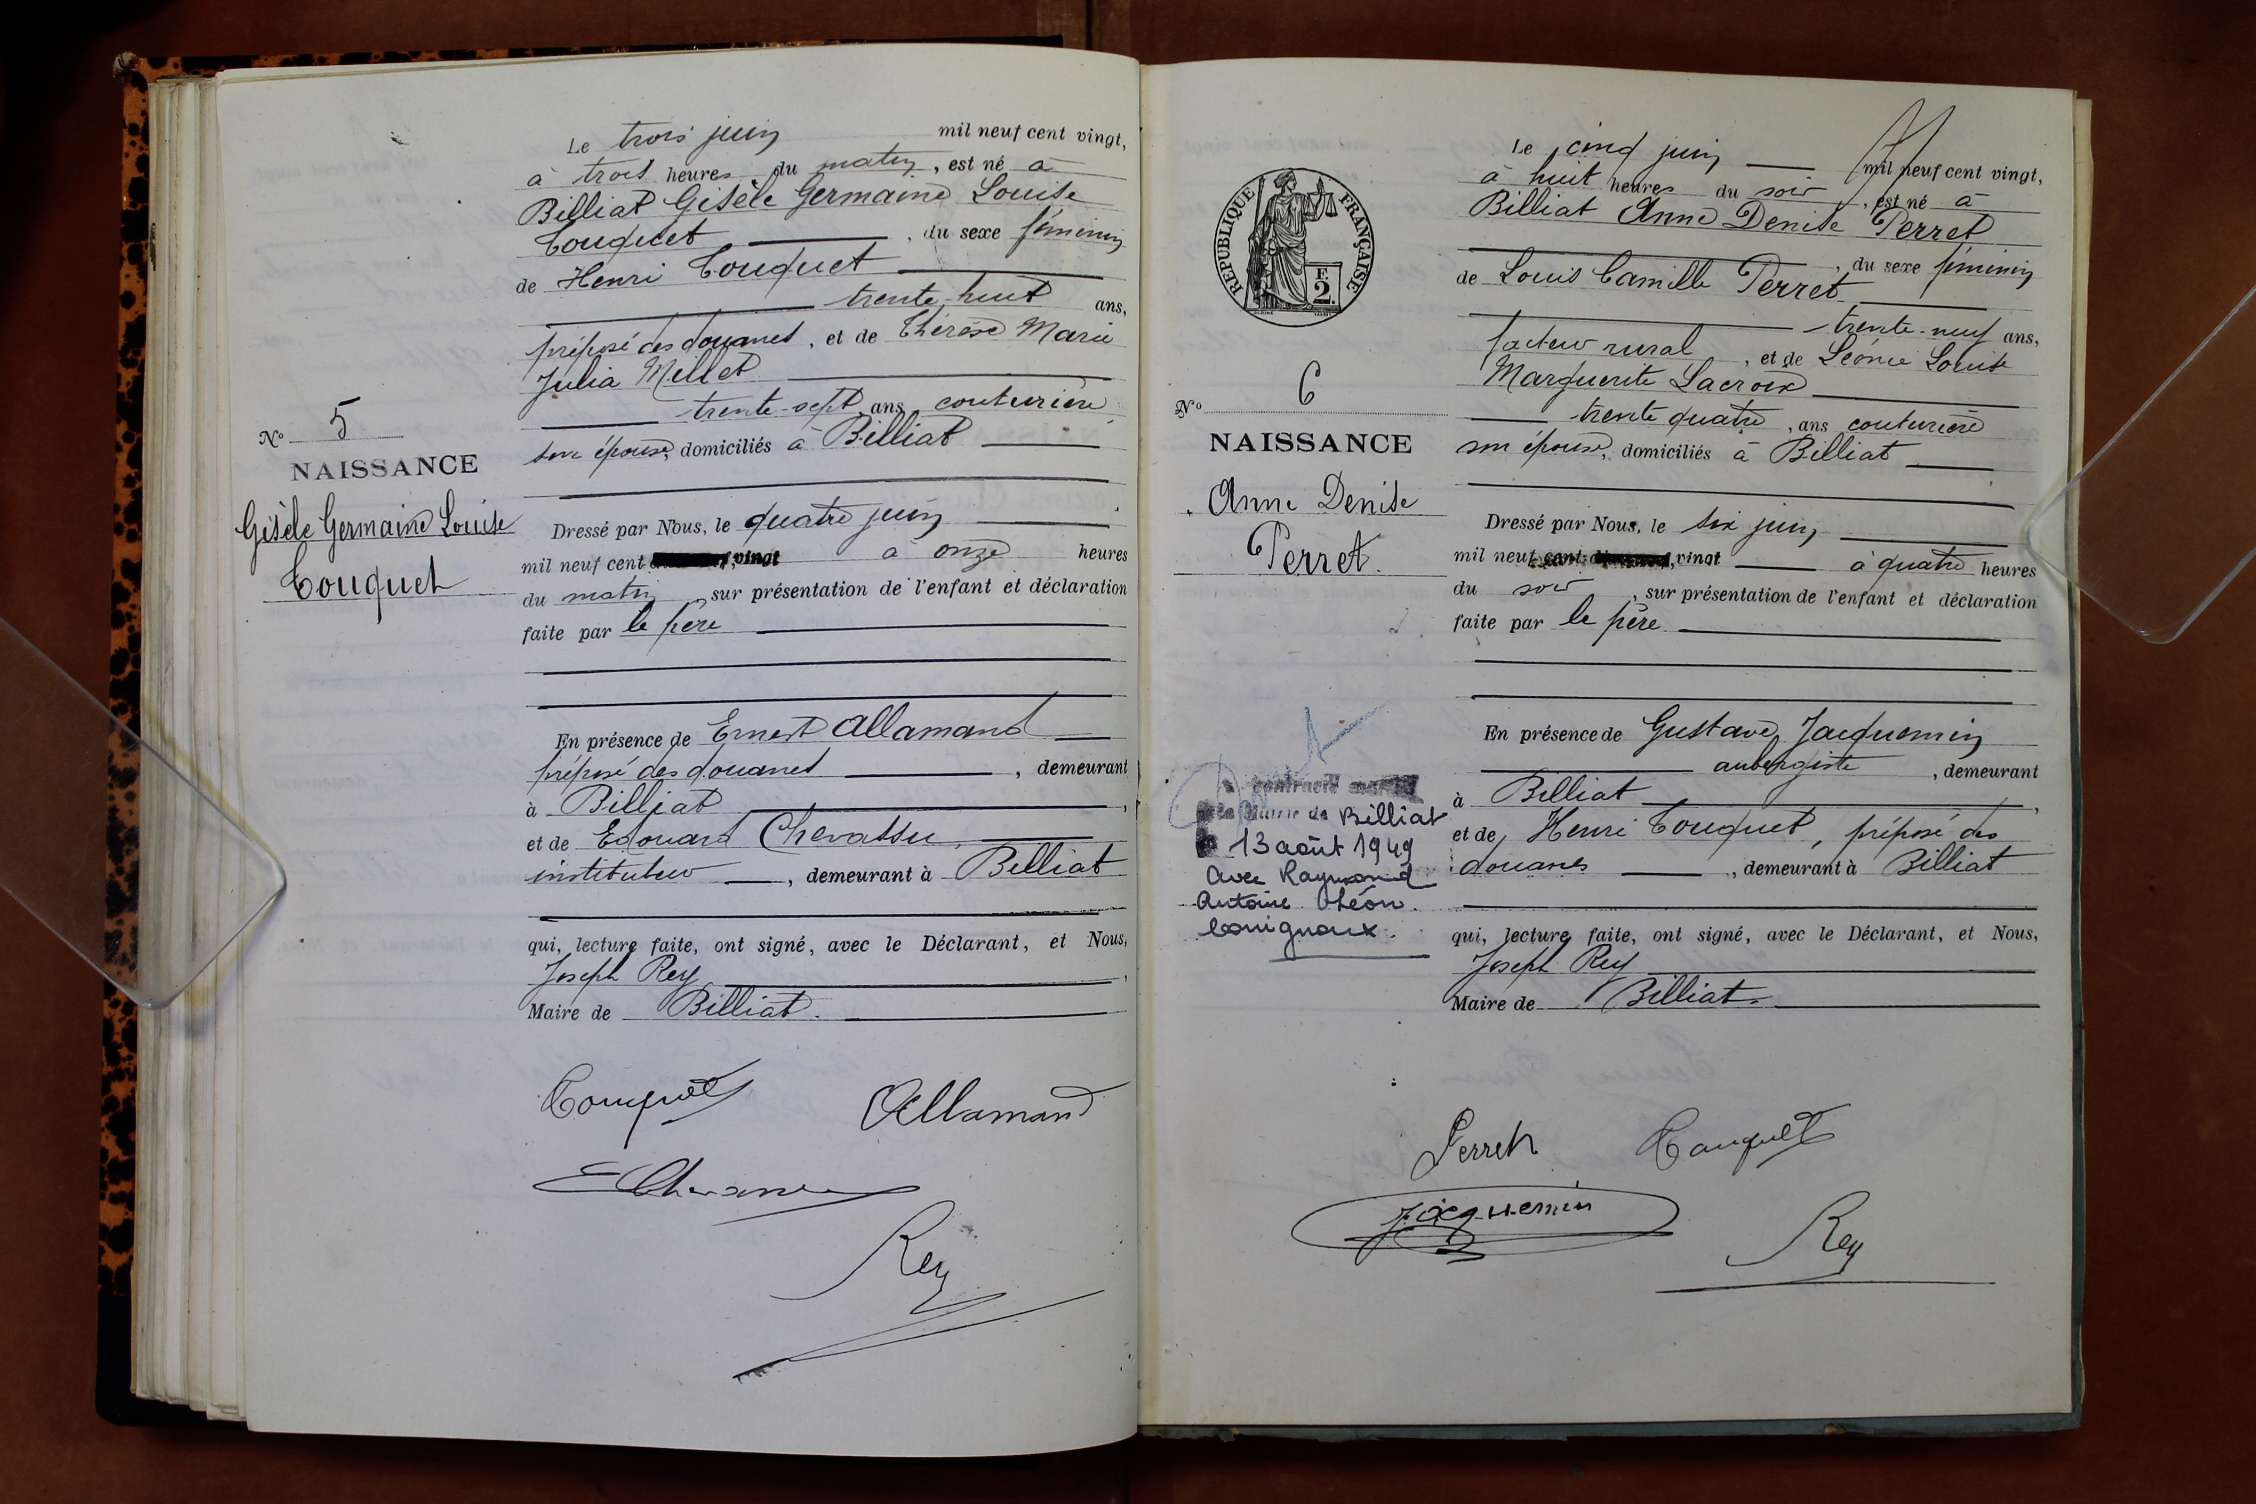 N° 5
NAISSANCE
Gisèle Germaine Louise
Touquet
Le trois juin mil neuf cent vingt,
à trois heures du matin, est né à
Billiat Gisèle Germaine Louise
Touquet, du sexe féminin
de Henri Touquet
trente-huit ans,
préposé des douanes, et de Thérèse Marie
Julia Millet
trente-sept ans couturière
son épouse, domiciliés à Billiat
Dressé par Nous, le quatre juin
mil neuf cent vingt à onze heures
du matin, sur présentation de l'enfant et déclaration
faite par le père
En présence de Ernest Allamand
préposé des douanes, demeurant
à Billiat,
et de Edouard Chevassu,
instituteur, demeurant à Billiat
qui, lecture faite, ont signé, avec le Déclarant, et Nous,
Joseph Rey,
Maire de Billiat.
Touquet Allamand
E Chevassu
Rey
REPUBLIQUE FRANÇAISE
F.
2.
N° 6
NAISSANCE
Anne Denise
Perret.
contracté mariage
à la Mairie de Billiat
le 13 août 1949
avec Raymond
Antoine Théon
Le cinq juin mil neuf cent vingt,
à huit heures du soir, est né à
Billiat Anne Denise Perret
, du sexe féminin
de Louis Camille Perret
trente-neuf ans,
facteur rural, et de Léonie Louise
Marguerite Lacroix
trente quatre, ans couturière
son épouse, domiciliés à Billiat
Dressé par Nous, le six juin,
mil neuf cent vingt à quatre heures
du soir, sur présentation de l'enfant et déclaration
faite par le père
En présence de Gustave Jacquemin
aubergiste, demeurant
à Billiat,
et de Henri Touquet, préposé des
douanes, demeurant à Billiat
qui, lecture faite, ont signé, avec le Déclarant, et Nous,
Joseph Rey
Maire de Billiat.
Perret Touquet
Jacquemin
Rey